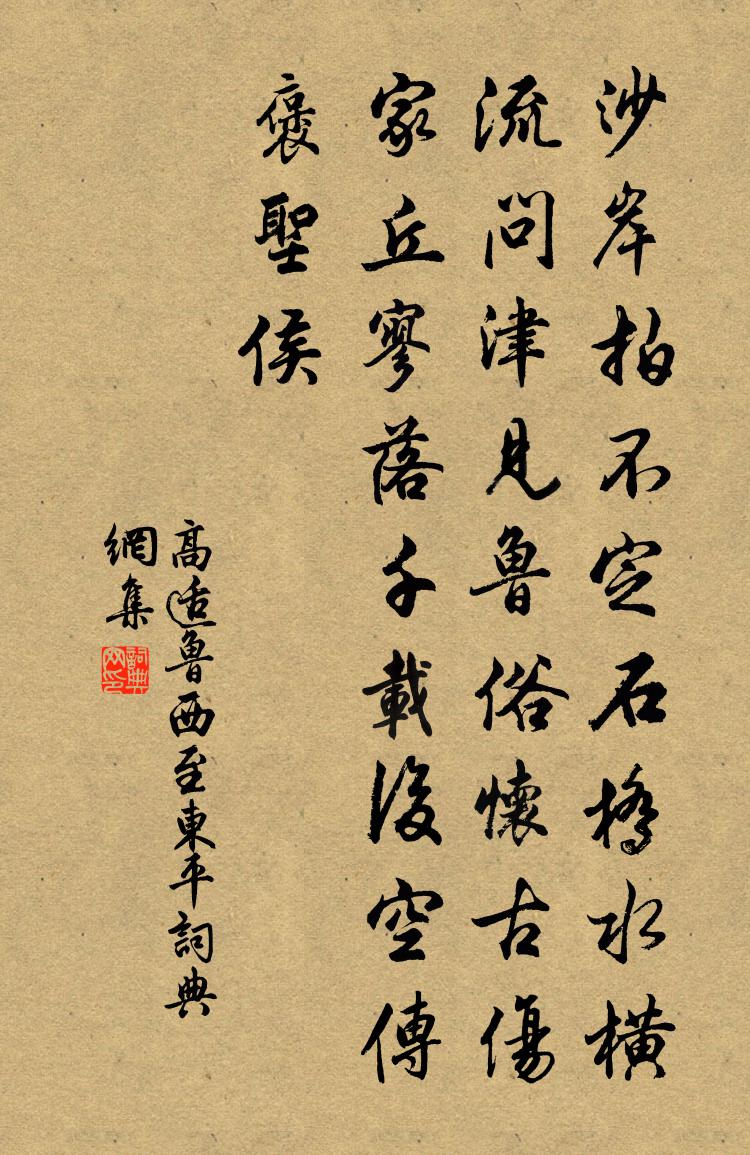 沙岸拍不定石橋水橫
流問津見魯俗懷古傷
家丘寥落千載後空傳
褒聖侯
高适魯西至東平詞典
網集
詞典網印